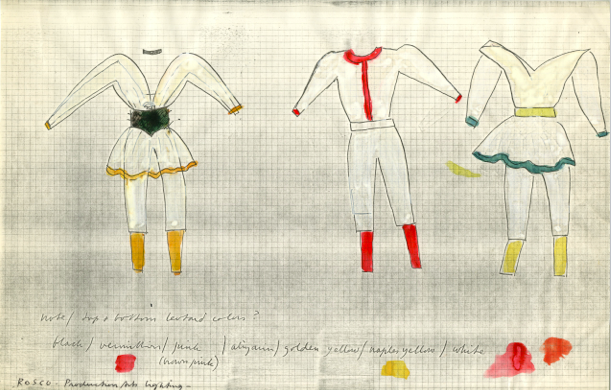 note/ top & bottom leotard colors?
black/ vermillion/ pink / alizarin/ golden yellow/ naples yellow/ white
(brown pink)
ROSCO - Production Arts Lighting -